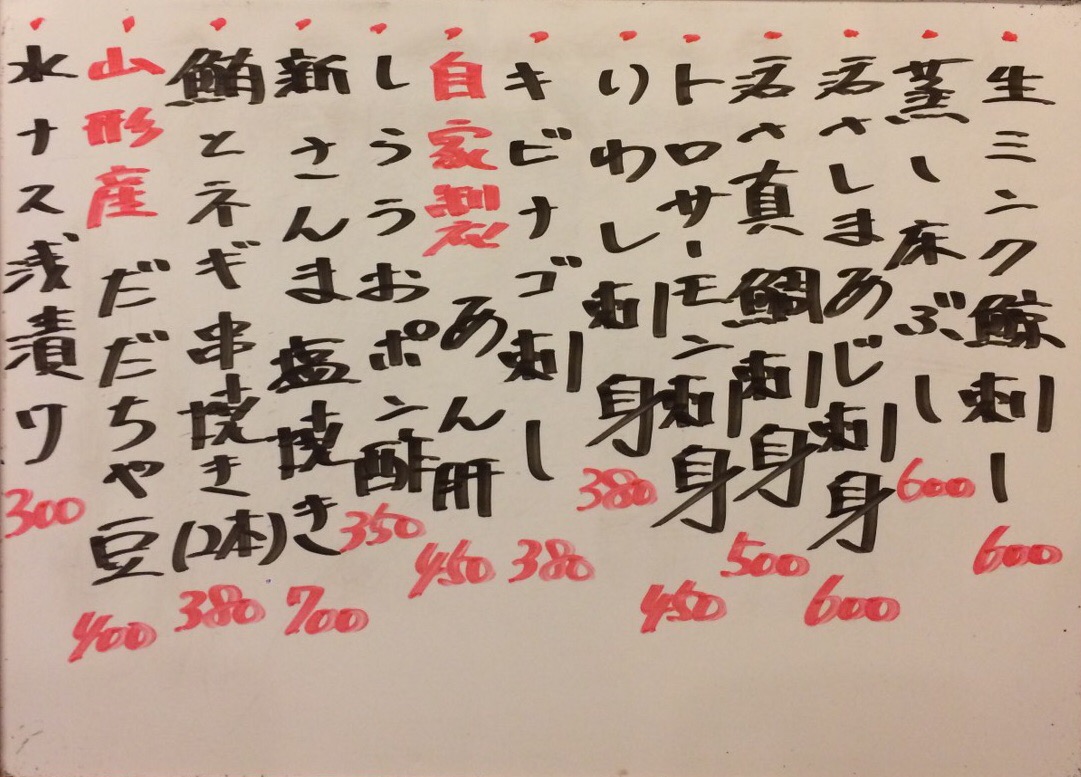 生ミンク鯨刺し 600
蒸し床ぶし 600
しまあじ刺身 600
真鯛刺身 500
トロサーモン刺身 450
いわし刺身 380
キビナゴ刺し 380
自家製あん肝 450
しらうおポン酢 350
新さんま塩焼き 700
鮪とネギ串焼き(2本) 380
山形産だだちゃ豆 400
水ナス浅漬け 300